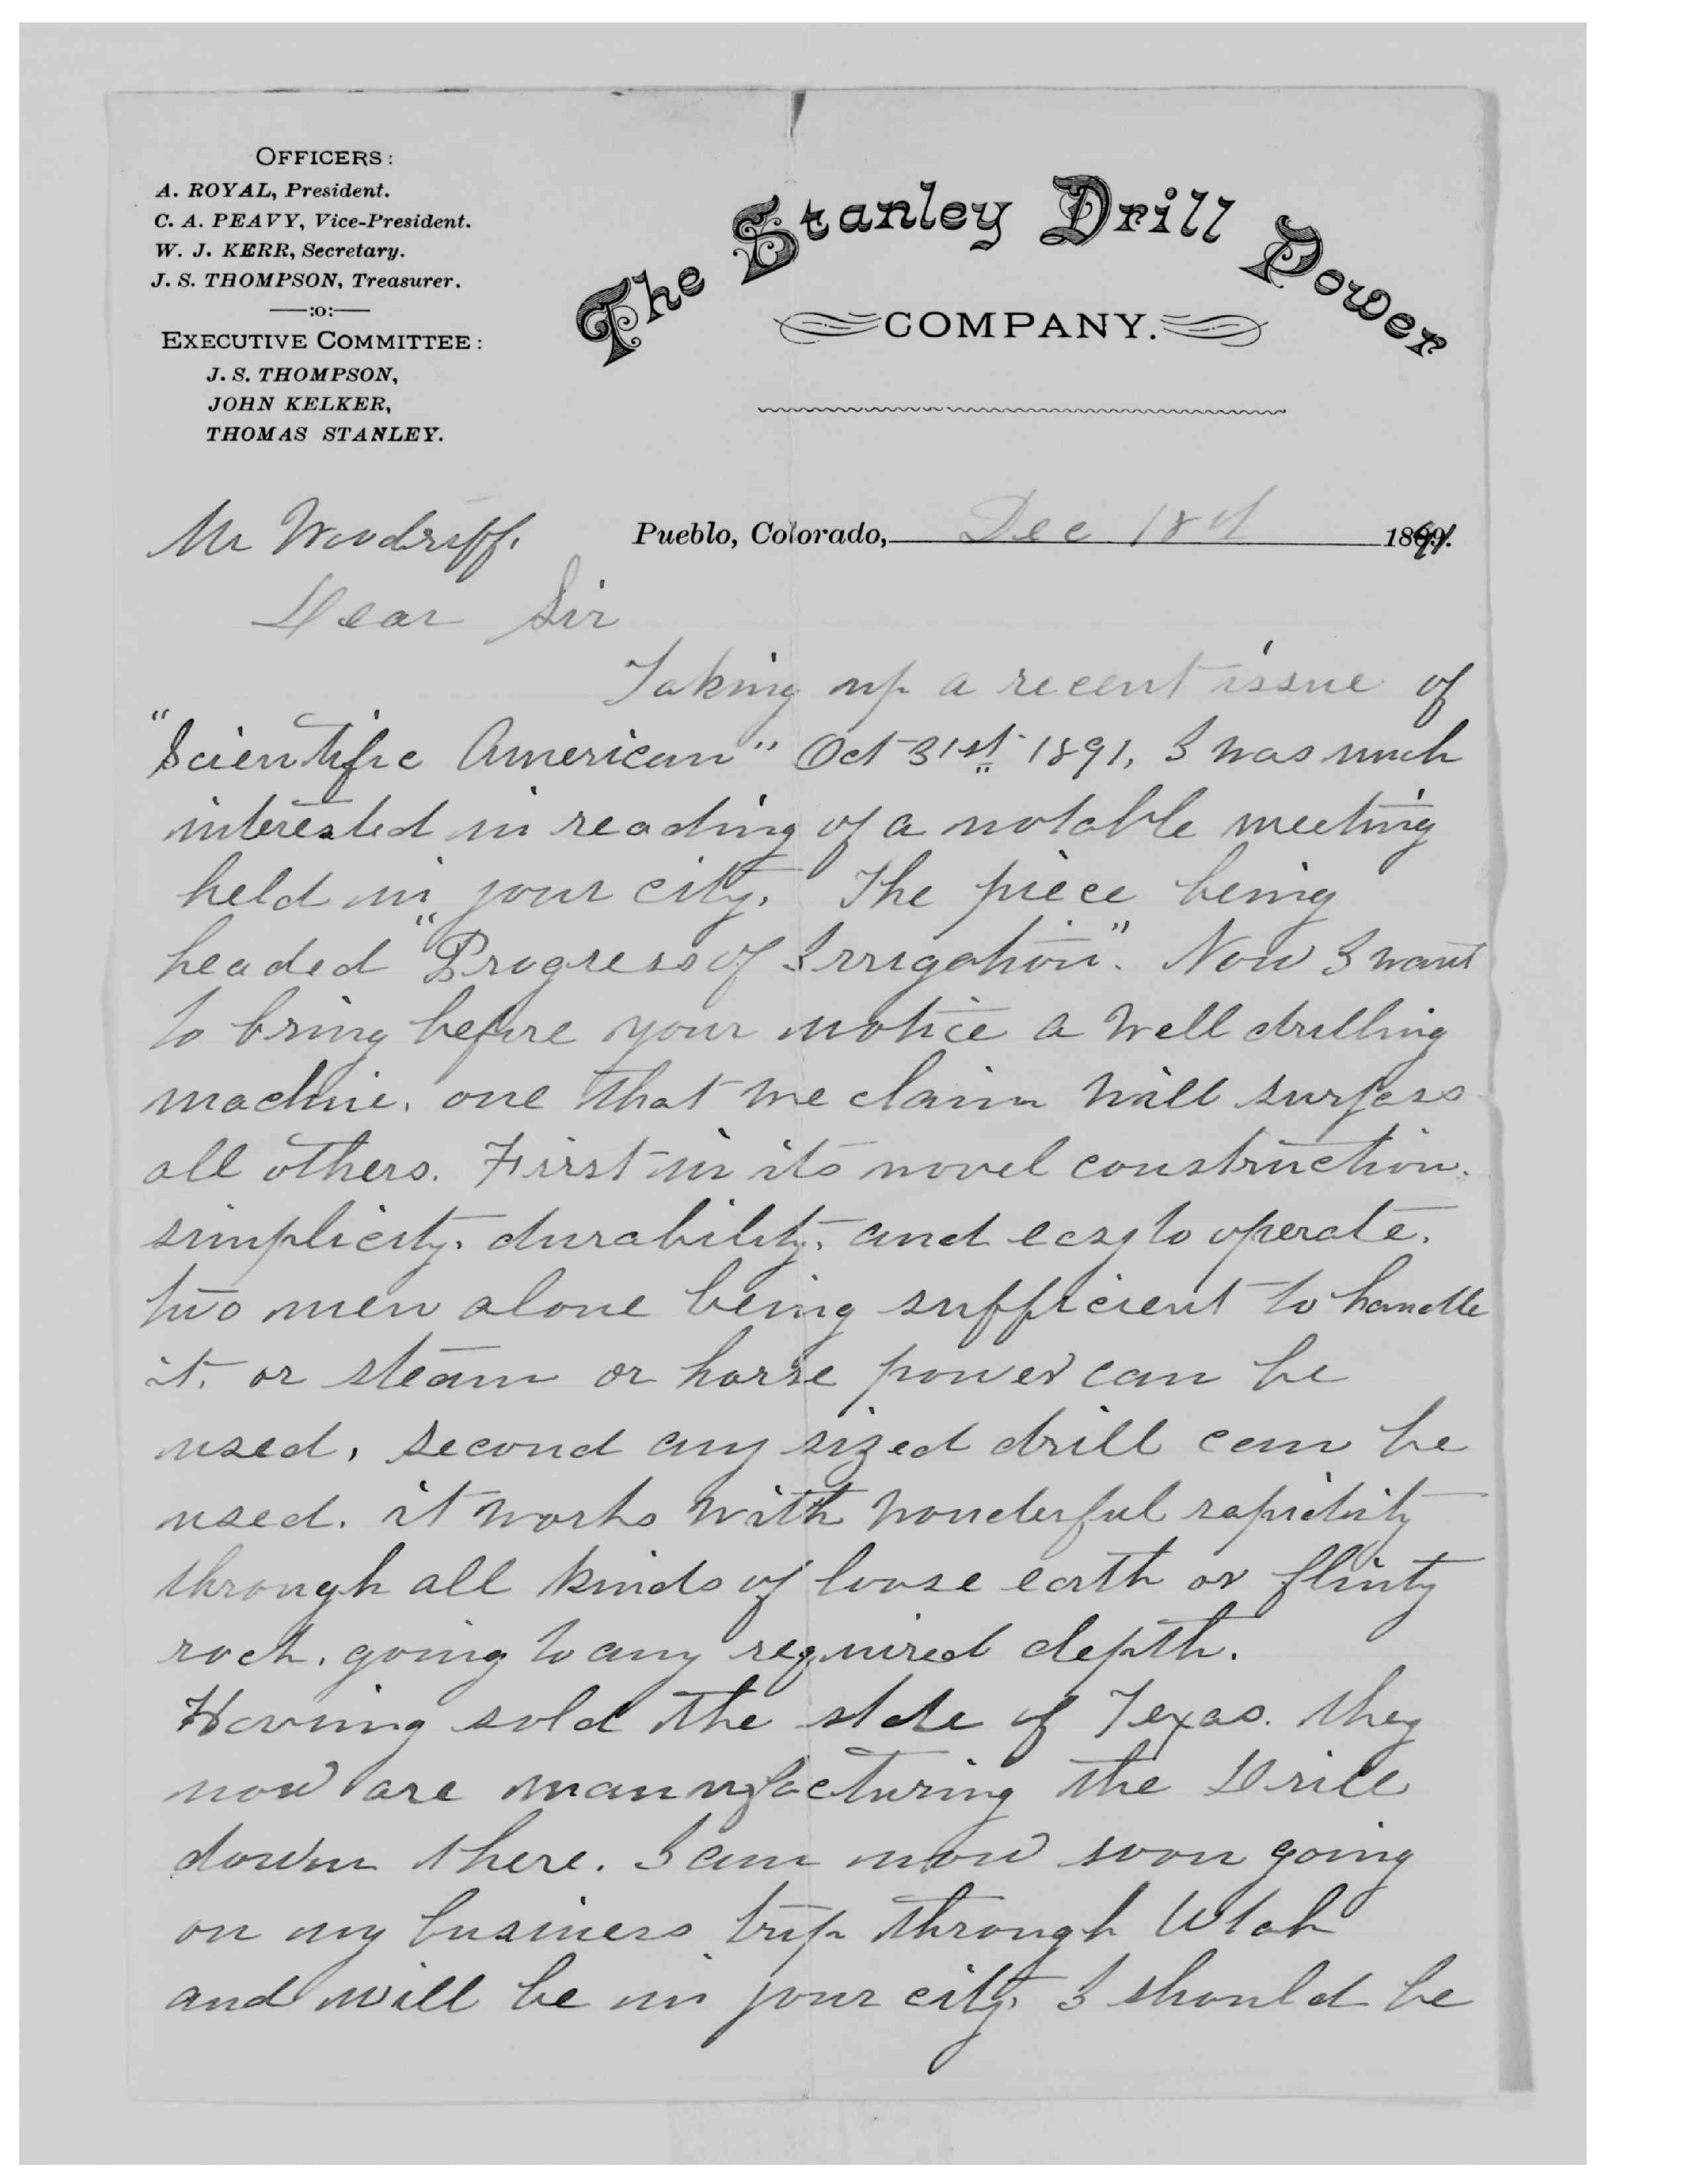 OFFICERS:
A. ROYAL, President.
C. A. PEAVY, Vice-President.
W. J. KERR, Secretary.
J. S. THOMPSON, Treasurer.
:o:
EXECUTIVE COMMITTEE:
J. S. THOMPSON,
JOHN KELKER,
THOMAS STANLEY.
The Stanley Drill Power
COMPANY.
Pueblo, Colorado, Dec 18th 1891.
Mr Woodruff.
Dear Sir
Taking up a recent issue of
"Scientific American" Oct 31st 1891, I was much
interested in reading of a notable meeting
held in your city. The piece being
headed "Progress of Irrigation". Now I want
to bring before your notice a well drilling
machine. one that we claim will surpass
all others. First in its novel construction.
simplicity. durability. and easy to operate.
two men alone being sufficient to handle
it. or steam or horse power can be
used, second any sized drill can be
used. it works with wonderful rapidity
through all kinds of loose earth or flinty
rock. going to any required depth.
Having sold the state of Texas. they
now are mannufacturing the Drill
down there. I am now soon going
on my business trip through Utah
and will be in your city. I should be